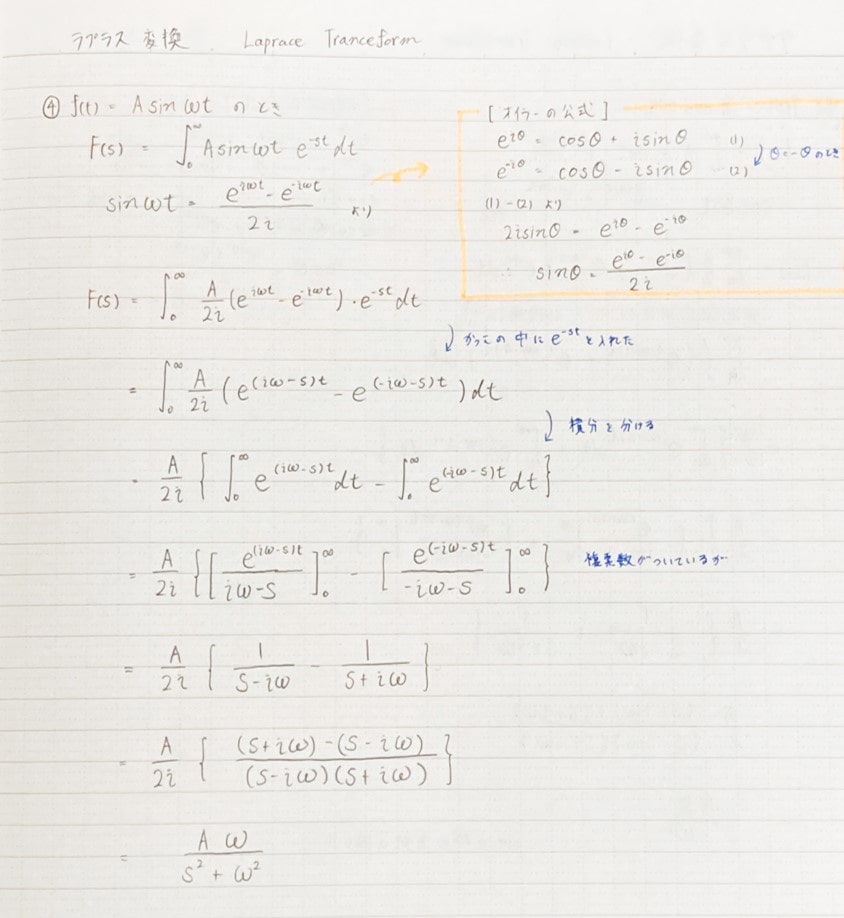 ラプラス 変換 Laprace Tranceform
④ f(t) = A sin ωt のとき
F(s) = ∫₀^∞ A sin ωt e^{-st} dt
sin ωt = (e^{iωt} - e^{-iωt}) / 2i より
[オイラーの公式]
e^{iθ} = cosθ + i sinθ (1)
e^{-iθ} = cosθ - i sinθ (2)
θ=-θ のとき
(1)-(2) より
2i sinθ = e^{iθ} - e^{-iθ}
∴ sinθ = (e^{iθ} - e^{-iθ}) / 2i
F(s) = ∫₀^∞ A/2i (e^{iωt} - e^{-iωt})・e^{-st} dt
かっこの中に e^{-st} を入れた
= ∫₀^∞ A/2i (e^{(iω-s)t} - e^{(-iω-s)t}) dt
積分を分ける
= A/2i { ∫₀^∞ e^{(iω-s)t} dt - ∫₀^∞ e^{(-iω-s)t} dt }
= A/2i { [ e^{(iω-s)t} / (iω-s) ]₀^∞ - [ e^{(-iω-s)t} / (-iω-s) ]₀^∞ } 複素数がついているが
= A/2i { 1/(s-iω) - 1/(s+iω) }
= A/2i { ((s+iω)-(s-iω)) / ((s-iω)(s+iω)) }
= A ω / (s² + ω²)